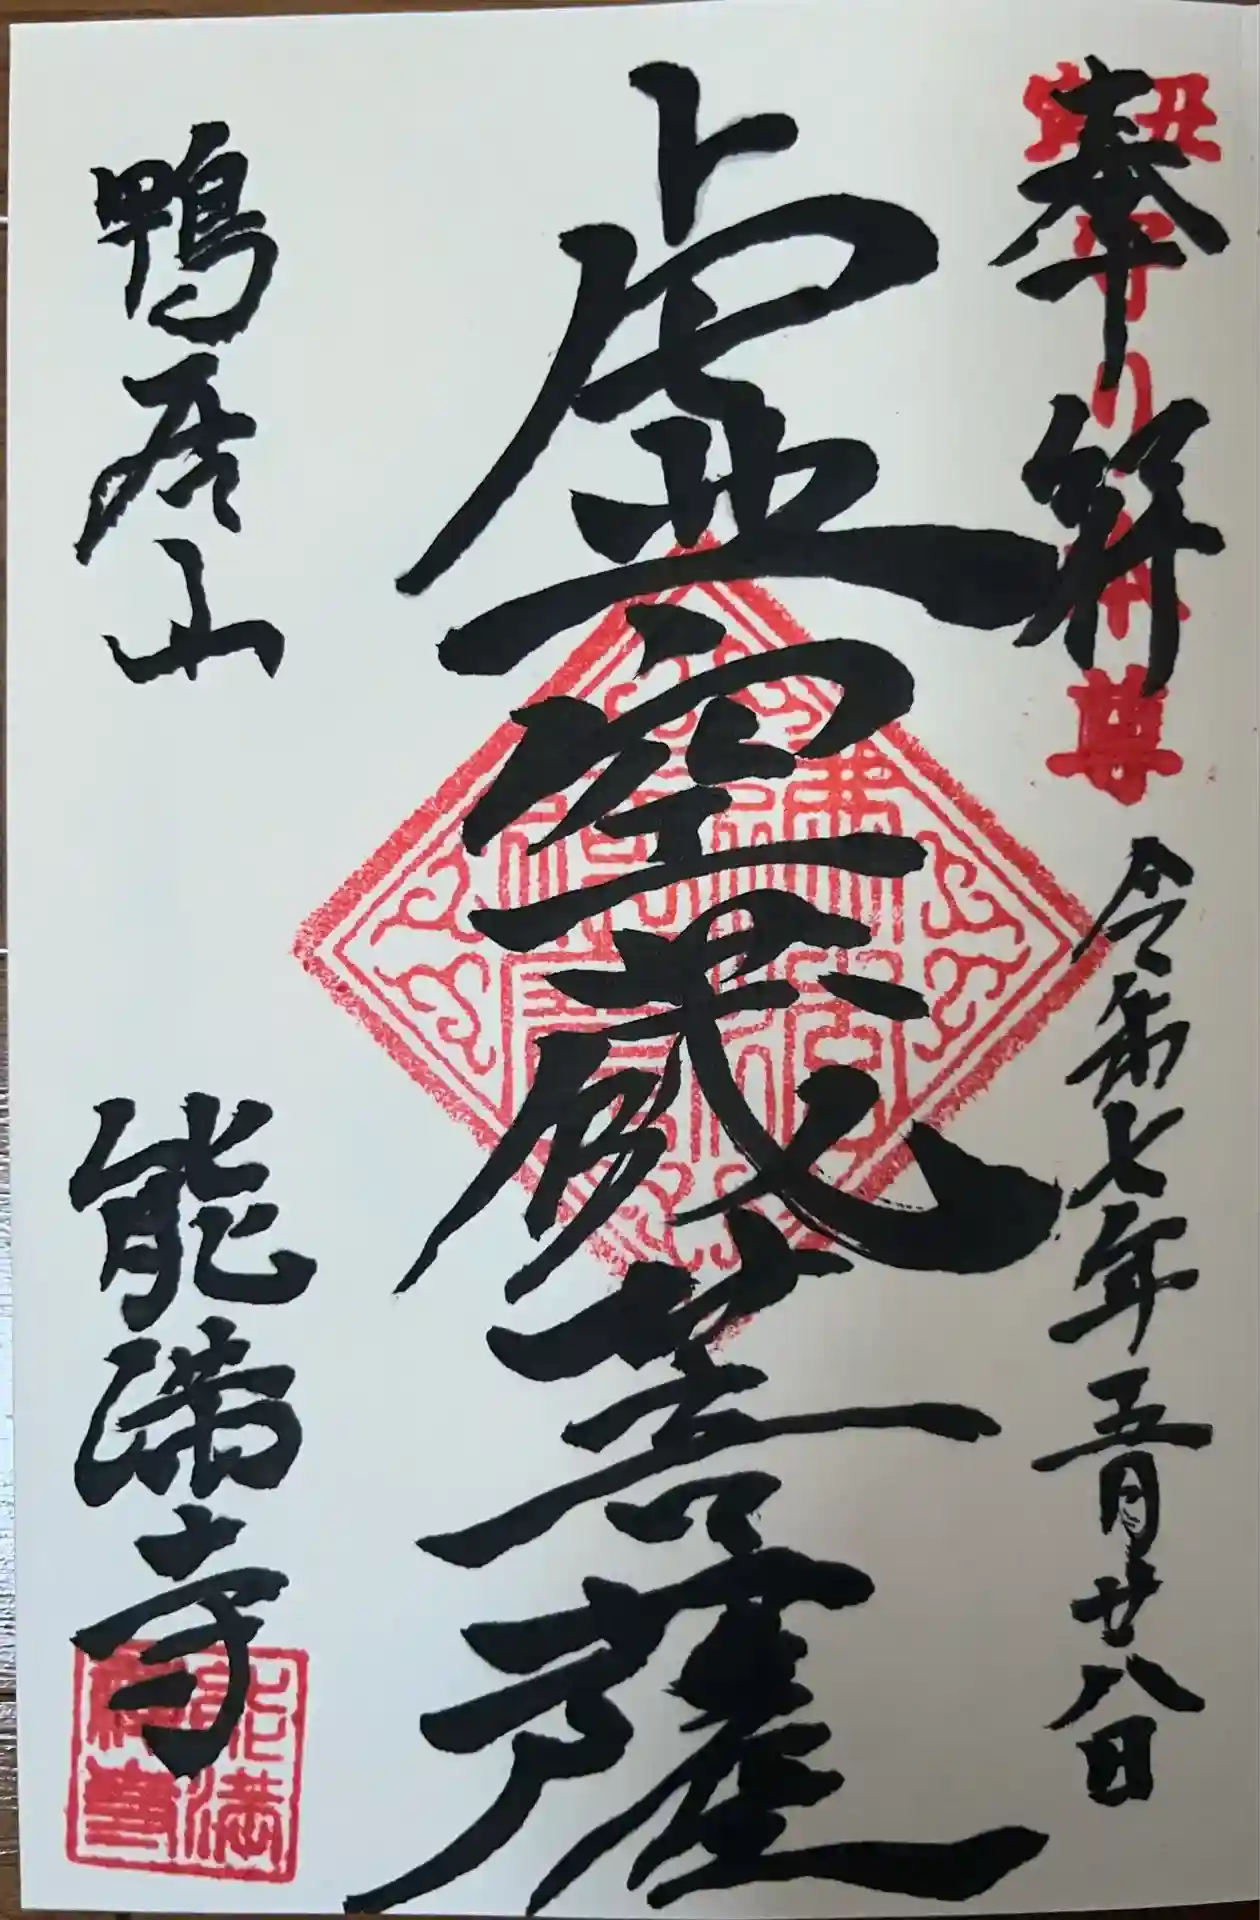 丑寅守り本尊
奉拝 令和七年五月廿八日
虚空蔵菩薩
鴨居山 能満寺